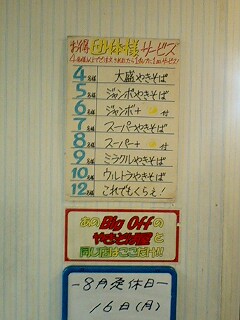 お得団体様サービス
4名様 大盛やきそば
5名様 ジャンボやきそば
6名様 ジャンボ+ 付
7名様 スーパーやきそば
8名様 スーパー+ 付
9名様 ミラクルやきそば
10名様 ウルトラやきそば
12名様 これでもくらえ!
あの Big Off の
やきそば屋と
同じ店はここだけ!!
-8月定休日-
16日(月)